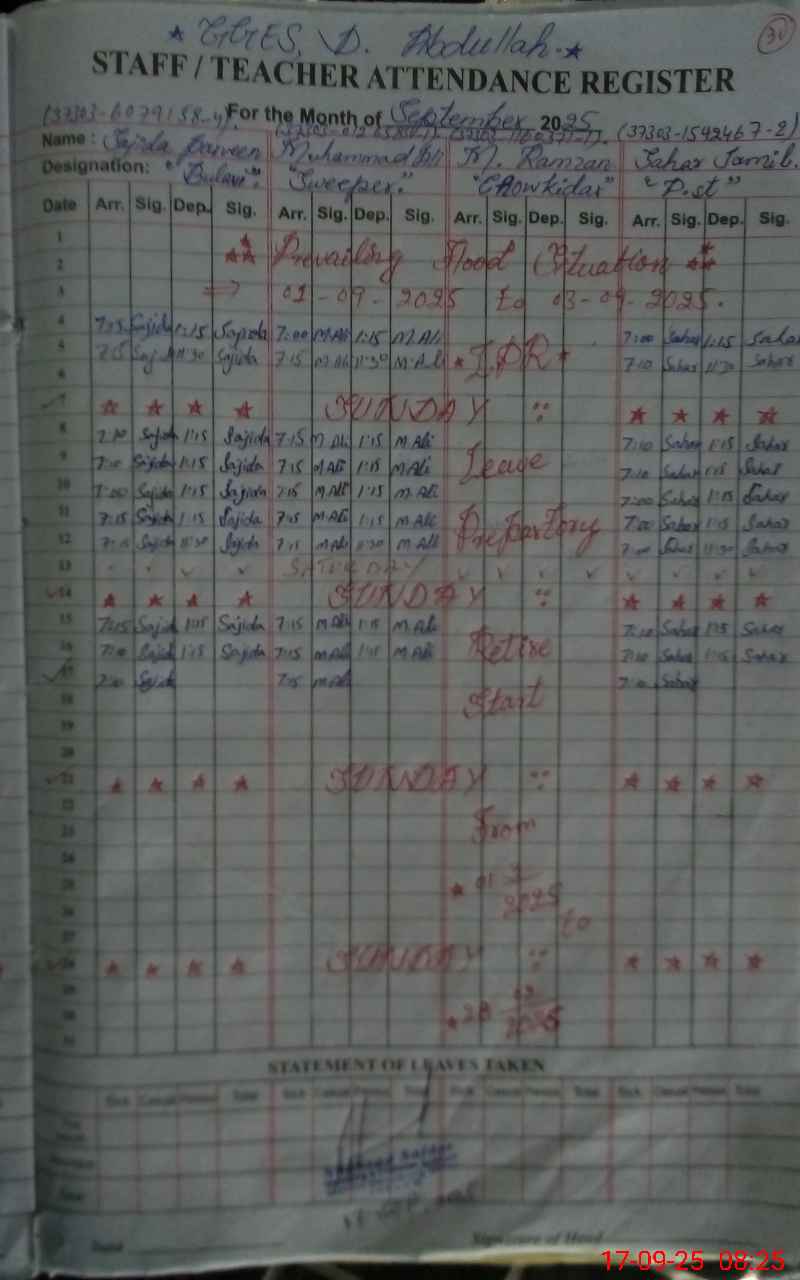 30
★ GGES, D. Abdullah. ★
STAFF / TEACHER ATTENDANCE REGISTER
For the Month of September 2025
(37303-1592467-2)
Name : Sajida Parveen Muhammad Ali M. Ramzan Sahar Jamil.
Designation: "Bulavi". "Sweeper." "Chowkidar" "P.st"
Date Arr. Sig. Dep. Sig. Arr. Sig. Dep. Sig. Arr. Sig. Dep. Sig. Arr. Sig. Dep. Sig.
1
2 ★★★ Prevailing Flood Situation ★★★
3 ⇒ 01-09-2025 to 03-09-2025.
4 7:15 Sajida 1:15 Sajida 7:00 M Ali 1:15 M. Ali 7:00 Sahar 1:15 Sahar
5 7:15 Sajida 11:30 Sajida 7:15 M. Ali 11:30 M. Ali ★ L.P.R ★ 7:10 Sahar 11:30 Sahar
6
7 ★ ★ ★ ★ SUNDAY ★ ★ ★ ★
8 7:10 Sajida 1:15 Sajida 7:15 M Ali 1:15 M Ali 7:10 Sahar 1:15 Sahar
9 7:10 Sajida 1:15 Sajida 7:15 M Ali 1:15 M Ali Leave 7:10 Sahar 1:15 Sahar
10 7:00 Sajida 1:15 Sajida 7:15 M Ali 1:15 M. Ali 7:00 Sahar 1:15 Sahar
11 7:15 Sajida 1:15 Sajida 7:15 M Ali 1:15 M Ali Prepartory 7:00 Sahar 1:15 Sahar
12 7:15 Sajida 11:30 Sajida 7:15 M Ali 11:30 M Ali 7:00 Sahar 11:30 Sahar
13 SATURDAY
14 ★ ★ ★ ★ SUNDAY ★ ★ ★ ★
15 7:15 Sajida 1:15 Sajida 7:15 M Ali 1:15 M Ali 7:10 Sahar 1:15 Sahar
16 7:10 Sajida 1:15 Sajida 7:15 M Ali 1:15 M Ali Retire 7:10 Sahar 1:15 Sahar
17 7:10 Sajida 7:15 M Ali 7:10 Sahar
18 Start
19
20
21 ★ ★ ★ ★ SUNDAY ★ ★ ★ ★
22
23 From
24
25 ★ 01 2025
26 to
27
28 ★ ★ ★ ★ SUNDAY ★ ★ ★ ★
29
30 ★ 28 2025
31
STATEMENT OF LEAVES TAKEN
Sick Casual Total Sick Casual Total Sick Casual Total Sick Casual Total
Signature of Head
17-09-25 08:25